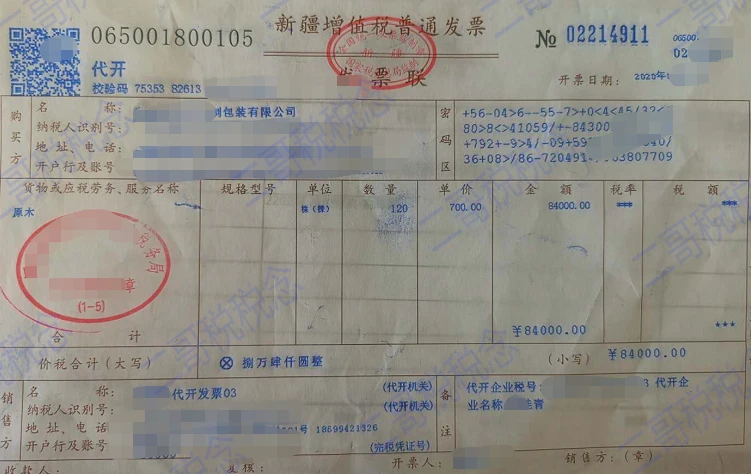 新疆增值税普通发票
065001800105
№ 02214911
06500.
02
代开
校验码 75353 82613
发票联
开票日期: 2020年
购买方
名 称: 包装有限公司
纳税人识别号:
地址、电话:
开户行及账号
密码区
+56-04>6--55-7>+0<4<45/32<
80>8<>41059/+-84300
+792+-9>4/-09+59
36+08>/86-720491 63807709
货物或应税劳务、服务名称 规格型号 单位 数量 单价 金额 税率 税额
原木 株(棵) 120 700.00 84000.00 *** ***
税务局
章
(1-5)
合 计 ¥84000.00 ***
价税合计(大写) ⊗ 捌万肆仟圆整 (小写) ¥84000.00
销售方
名 称: 代开发票03 (代开机关)
纳税人识别号: (代开机关)
地址、电话: 号 18699421326
开户行及账号 (完税凭证号)
备注
代开企业税号: 3 代开企
业名称 青
收款人: 复核: 开票人: 销售方:(章)
二哥税税念